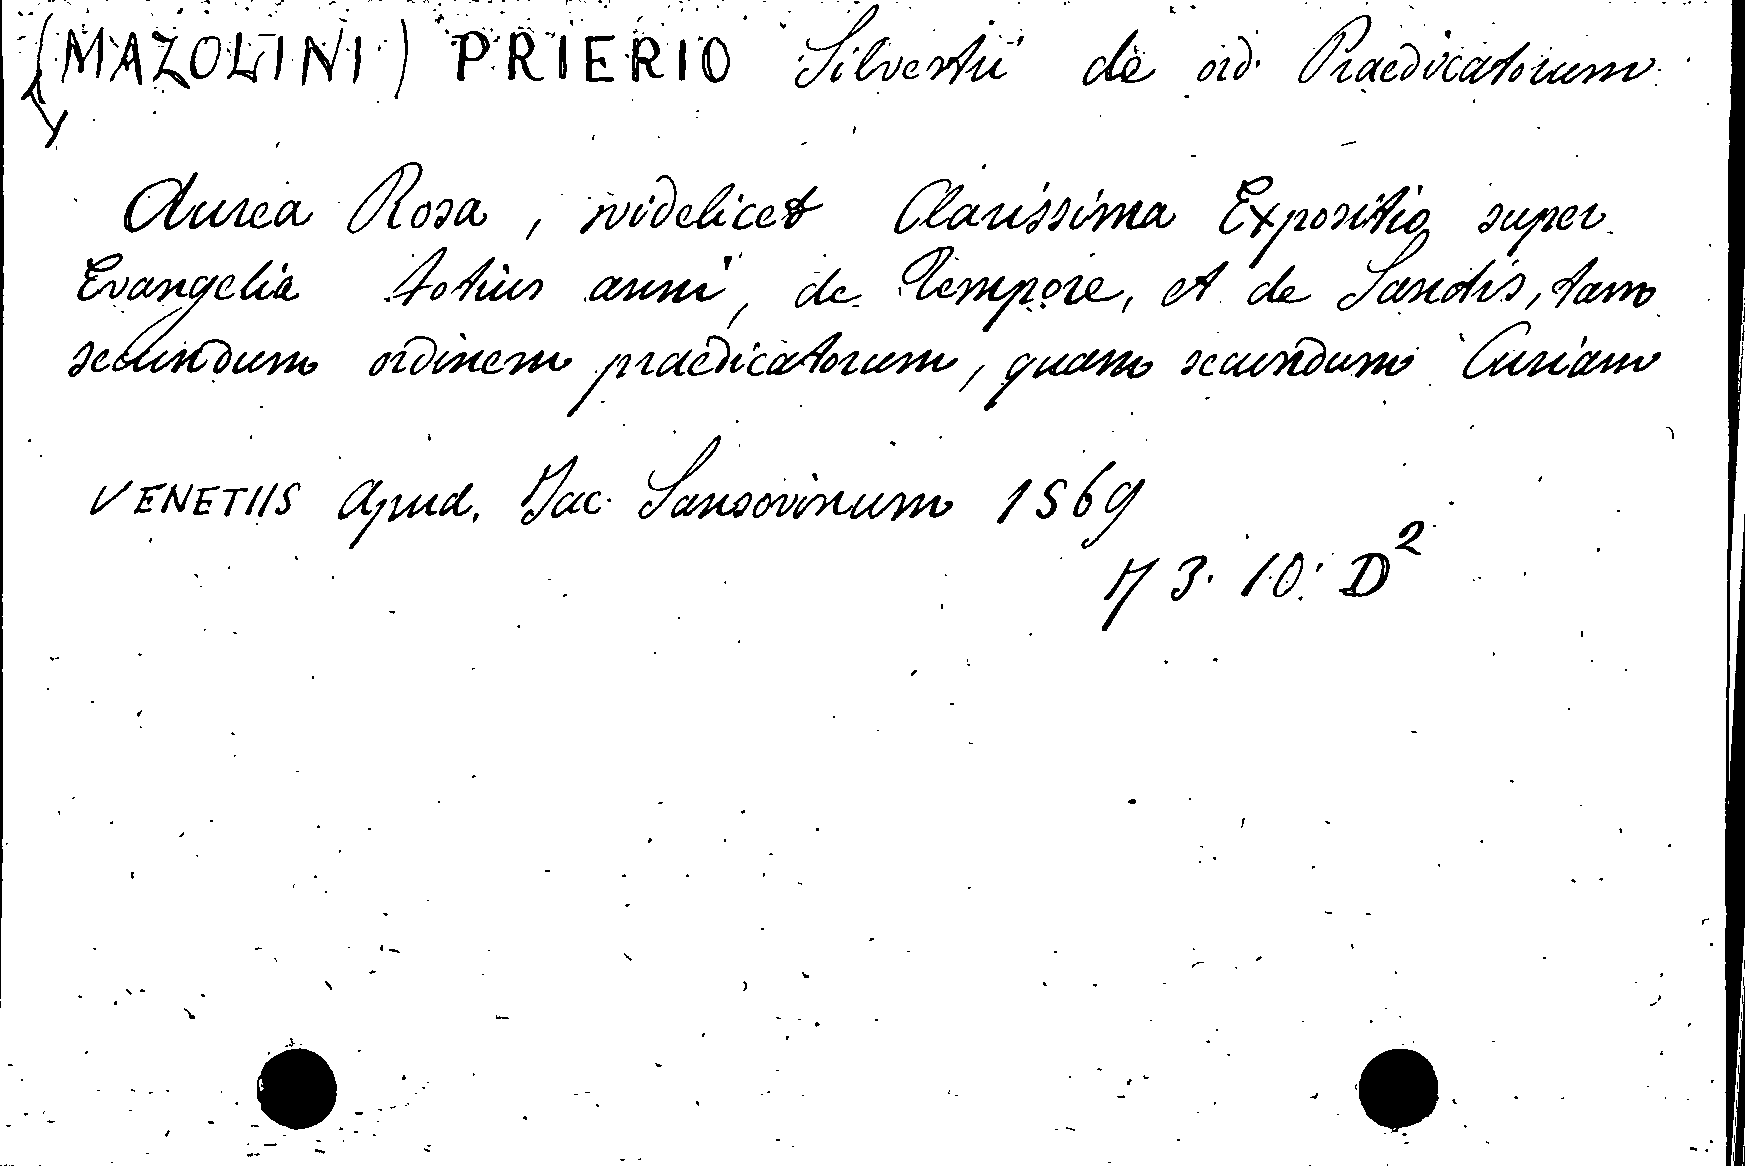 (MAZOLINI) PRIERIO Silvestri de ord. Praedicatorum
Aurea Rosa, videlicet Clarissima Expositio super
Evangelia totius anni, de Tempore, et de Sanctis, tam
secundum ordinem praedicatorum, quam secundum Curiam
VENETIIS Apud. Jac. Sansovinum 1569
3. 10. D²